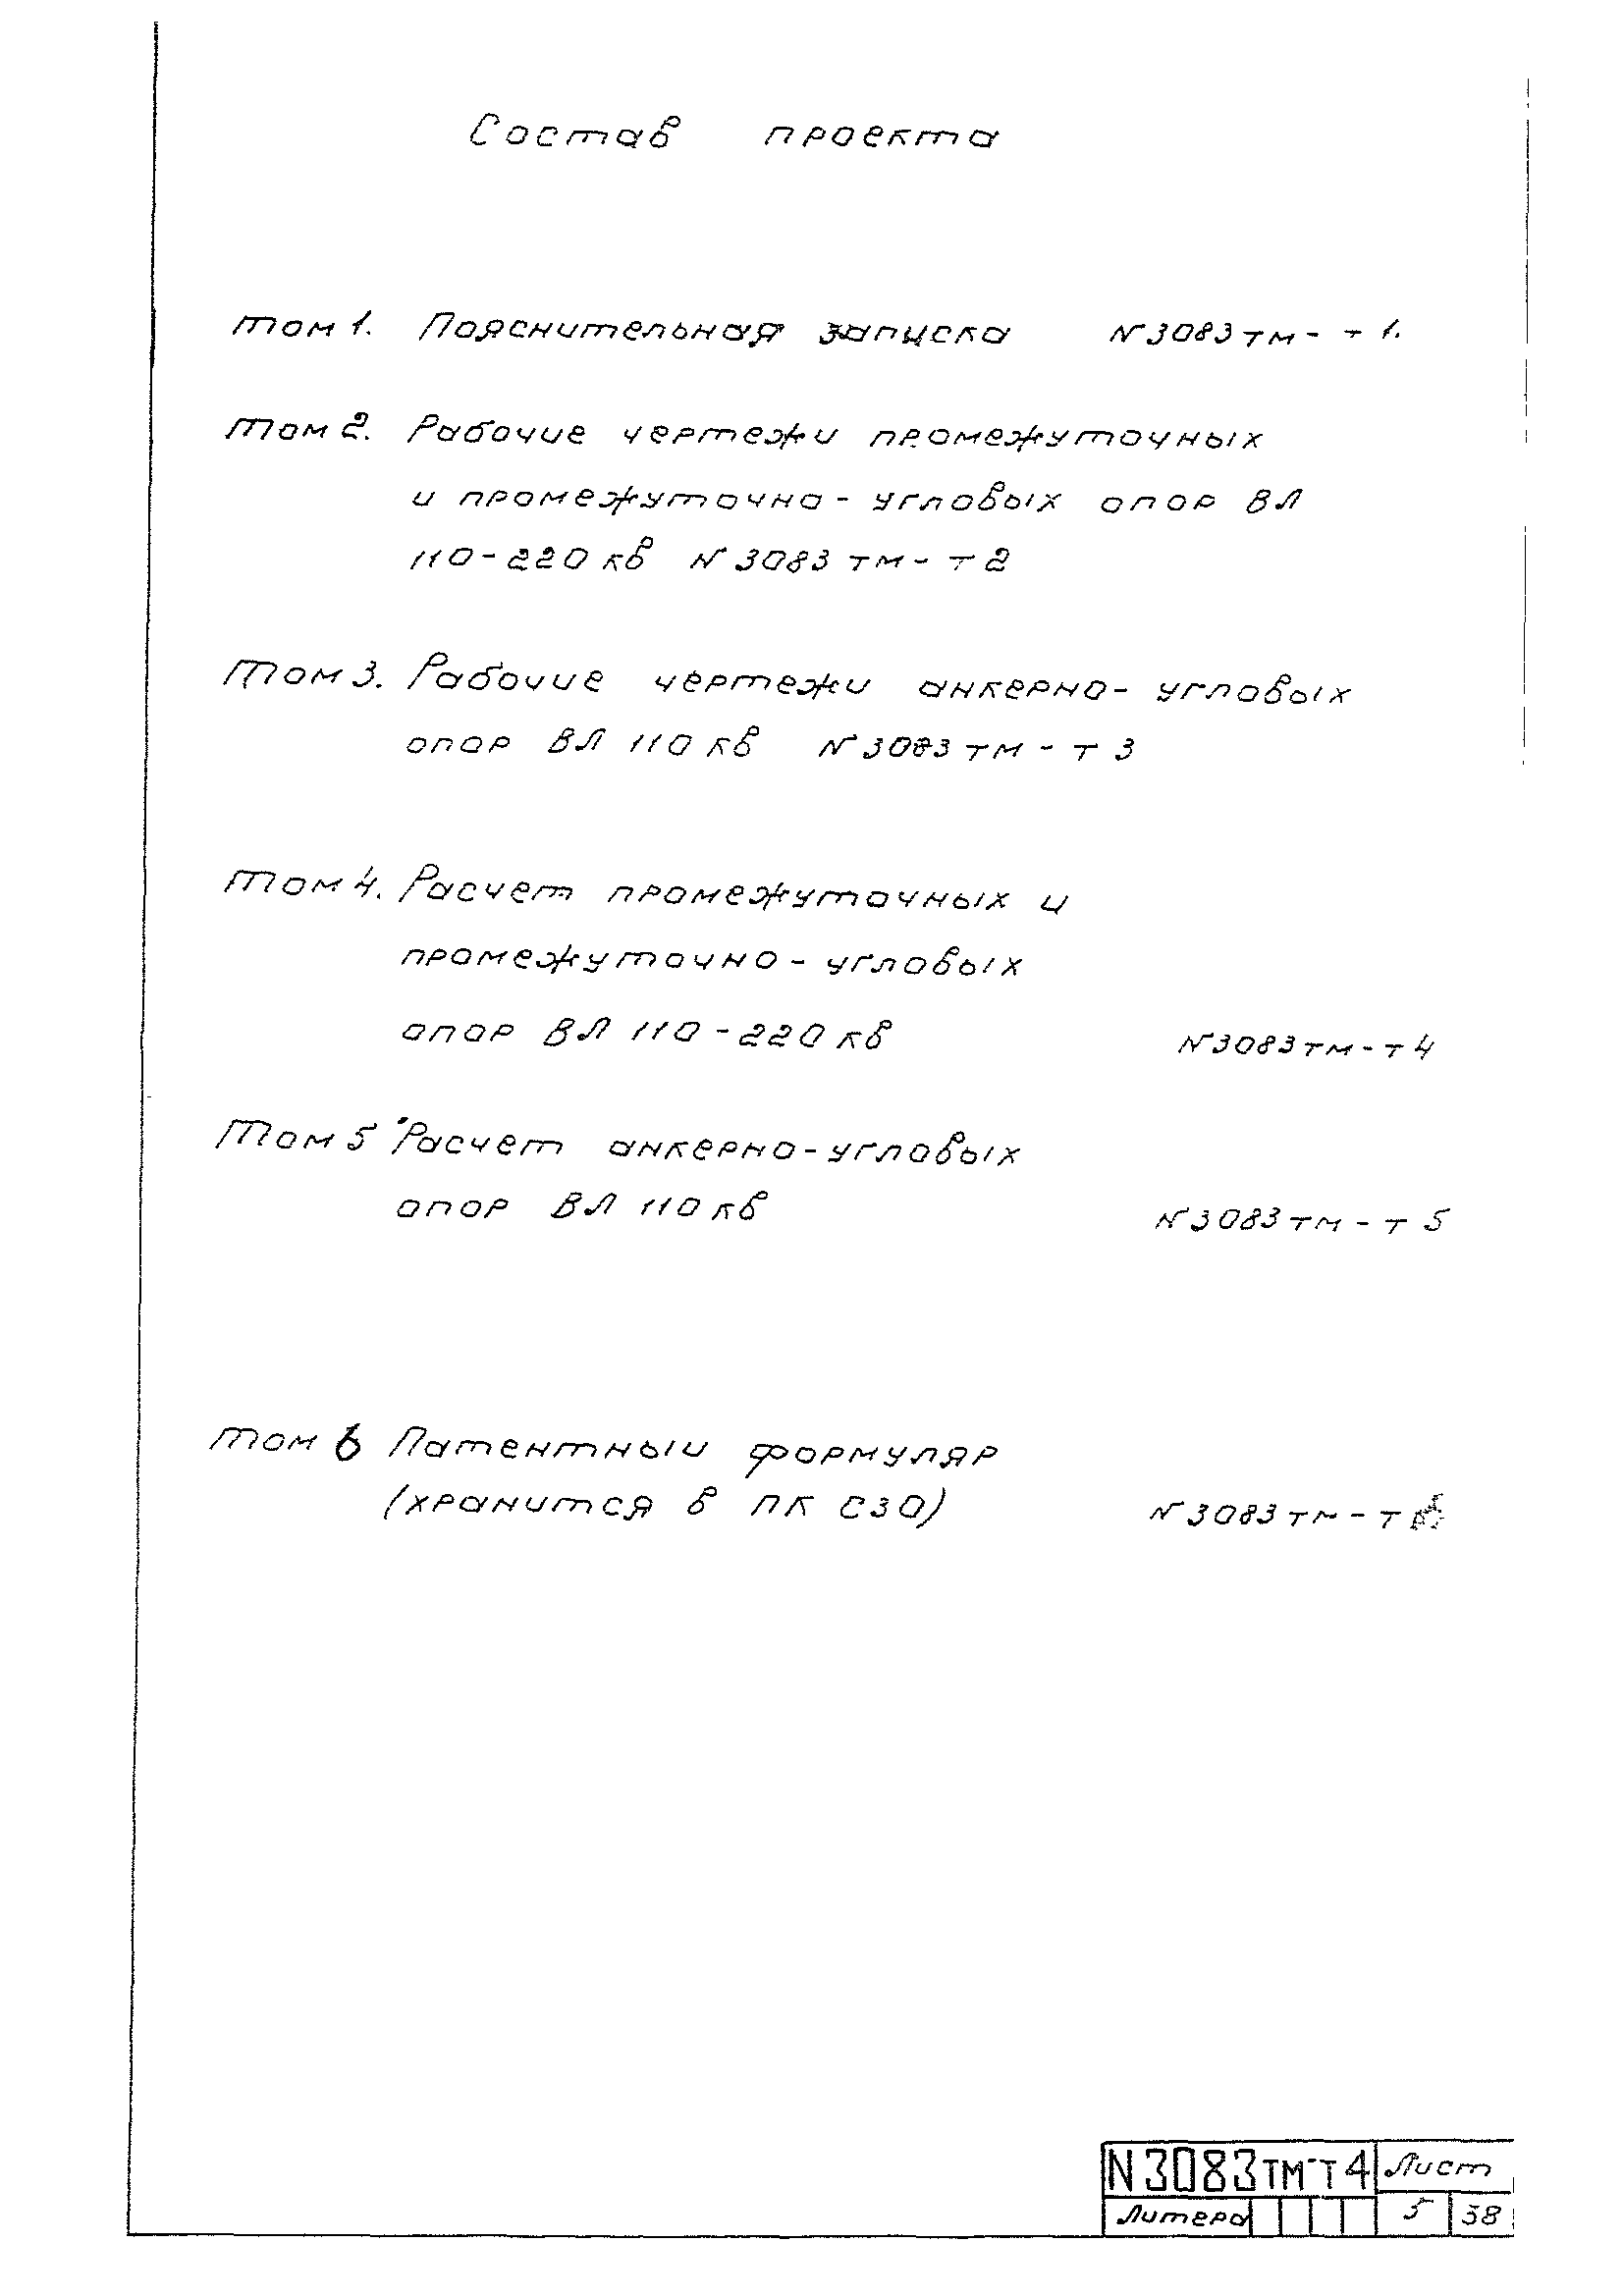 Состав проекта
Том 1. Пояснительная записка N 3083 тм - т 1.
Том 2. Рабочие чертежи промежуточных
и промежуточно - угловых опор ВЛ
110 - 220 кв N 3083 тм - т 2
Том 3. Рабочие чертежи анкерно - угловых
опор ВЛ 110 кв N 3083 тм - т 3
Том 4. Расчет промежуточных и
промежуточно - угловых
опор ВЛ 110 - 220 кв N 3083 тм - т 4
Том 5 Расчет анкерно - угловых
опор ВЛ 110 кв N 3083 тм - т 5
Том 6 Патентный формуляр
(хранится в ПК СЗО) N 3083 тм - т
N 3083тм-т 4 Лист
Литера 5 38